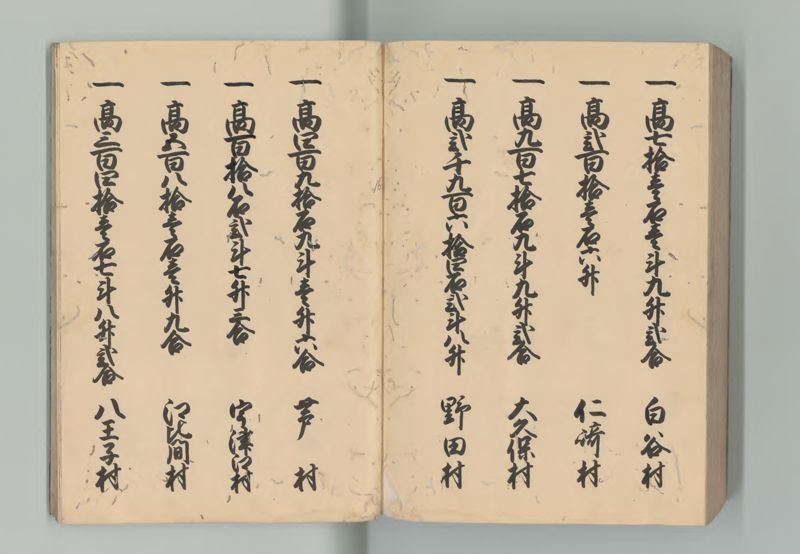 一高七拾壱石壱斗九升弐合 白谷村
一高弐百拾壱石六升 仁崎村
一高九百七拾石九斗九升弐合 大久保村
一高弐千九百六拾四石弐斗八升 野田村
一高四百九拾石九斗壱升六合 芦村
一高百拾八石弐斗七升三合 宇津江村
一高五百八拾壱石壱升九合 江比間村
一高三百四拾壱石七斗八升弐合 八王子村